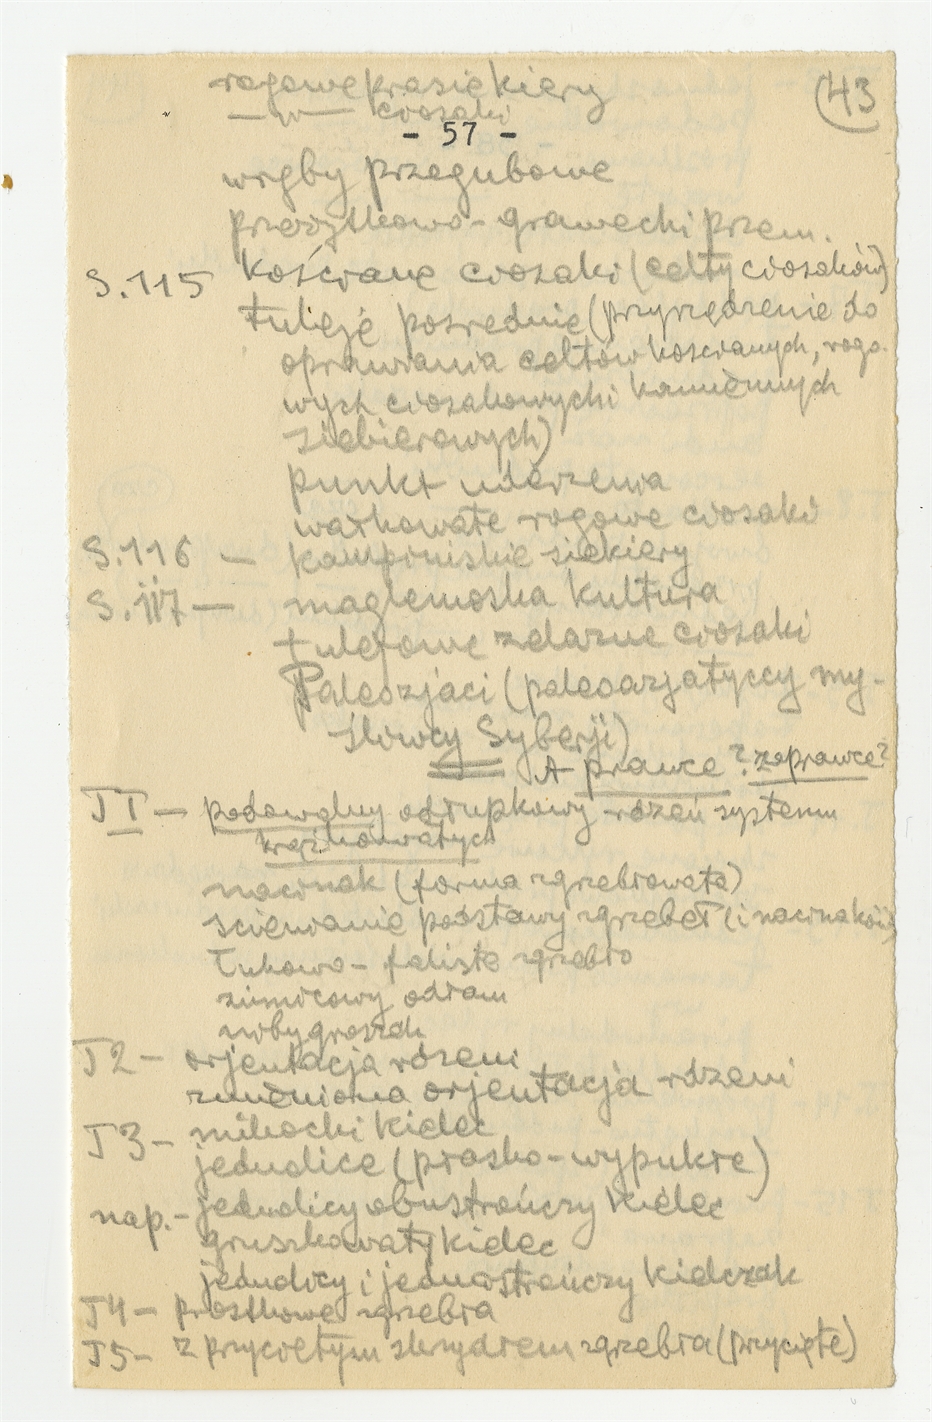 rogowe krasiekiery
(43
— " — ciosaki
- 57 -
wręby przegubowe
przeżytkowo-grawecki przem.
S.115 kościane ciosaki (celty ciosaków)
tuleje pośrednie (przyrządzenie do
oprawiania celtów kościanych, rogo-
wych ciosakowych i kamiennych
siekierowych)
punkt uderzenia
wałkowate rogowe ciosaki
S.116 — kampinskie siekiery
S.117 — maglemoska kultura
tulejowe żelazne ciosaki
Paleozjaci (paleoazjatyccy my-
śliwcy Syberji)
A prawce? zaprawce?
T I — podowalny odłupkowy rdzeń systemu
krążkowatych
nacinak (forma zgrzebłowata)
ścienianie podstawy zgrzebeł (i nacinaków)
Łukowo-faliste zgrzebło
zimicowy odłam
niby groszek
T2 — orjentacja rdzeni
zmieniona orjentacja rdzeni
T3 — mikocki kielec
jednolice (płasko-wypukłe)
nap. - jednolicy obustrończy kielec
gruszkowaty kielec
jednolicy i jednostrończy kielczak
T4 — prostkowe zgrzebła
T5 — z przyciętym skrzydłem zgrzebła (przycięte)